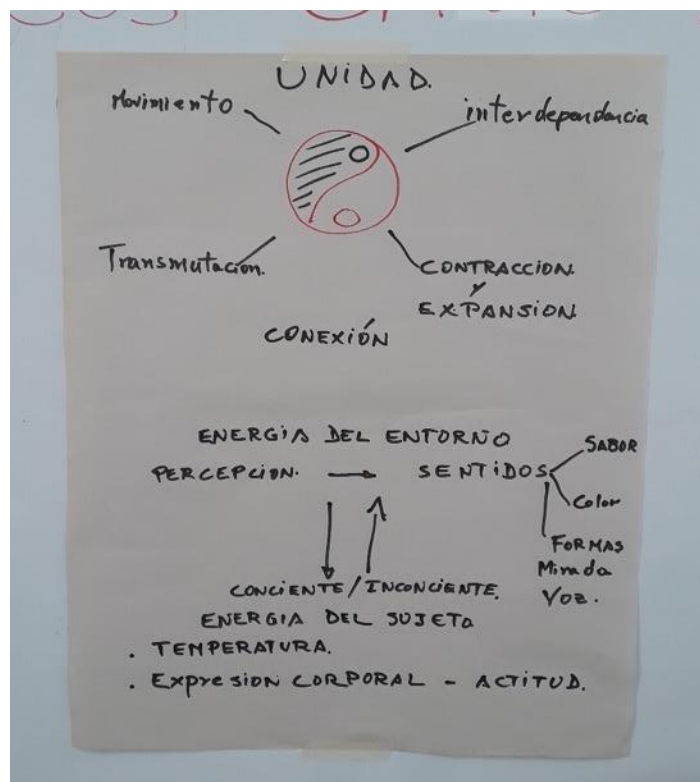 UNIDAD.
Movimiento
interdependencia
Transmutacion.
CONTRACCION
y
EXPANSION
CONEXIÓN
ENERGIA DEL ENTORNO
PERCEPCION. → SENTIDOS
SABOR
Color
FORMAS
Mirada
Voz.
CONCIENTE/INCONCIENTE.
ENERGIA DEL SUJETO
. TEMPERATURA.
. EXPRESION CORPORAL - ACTITUD.